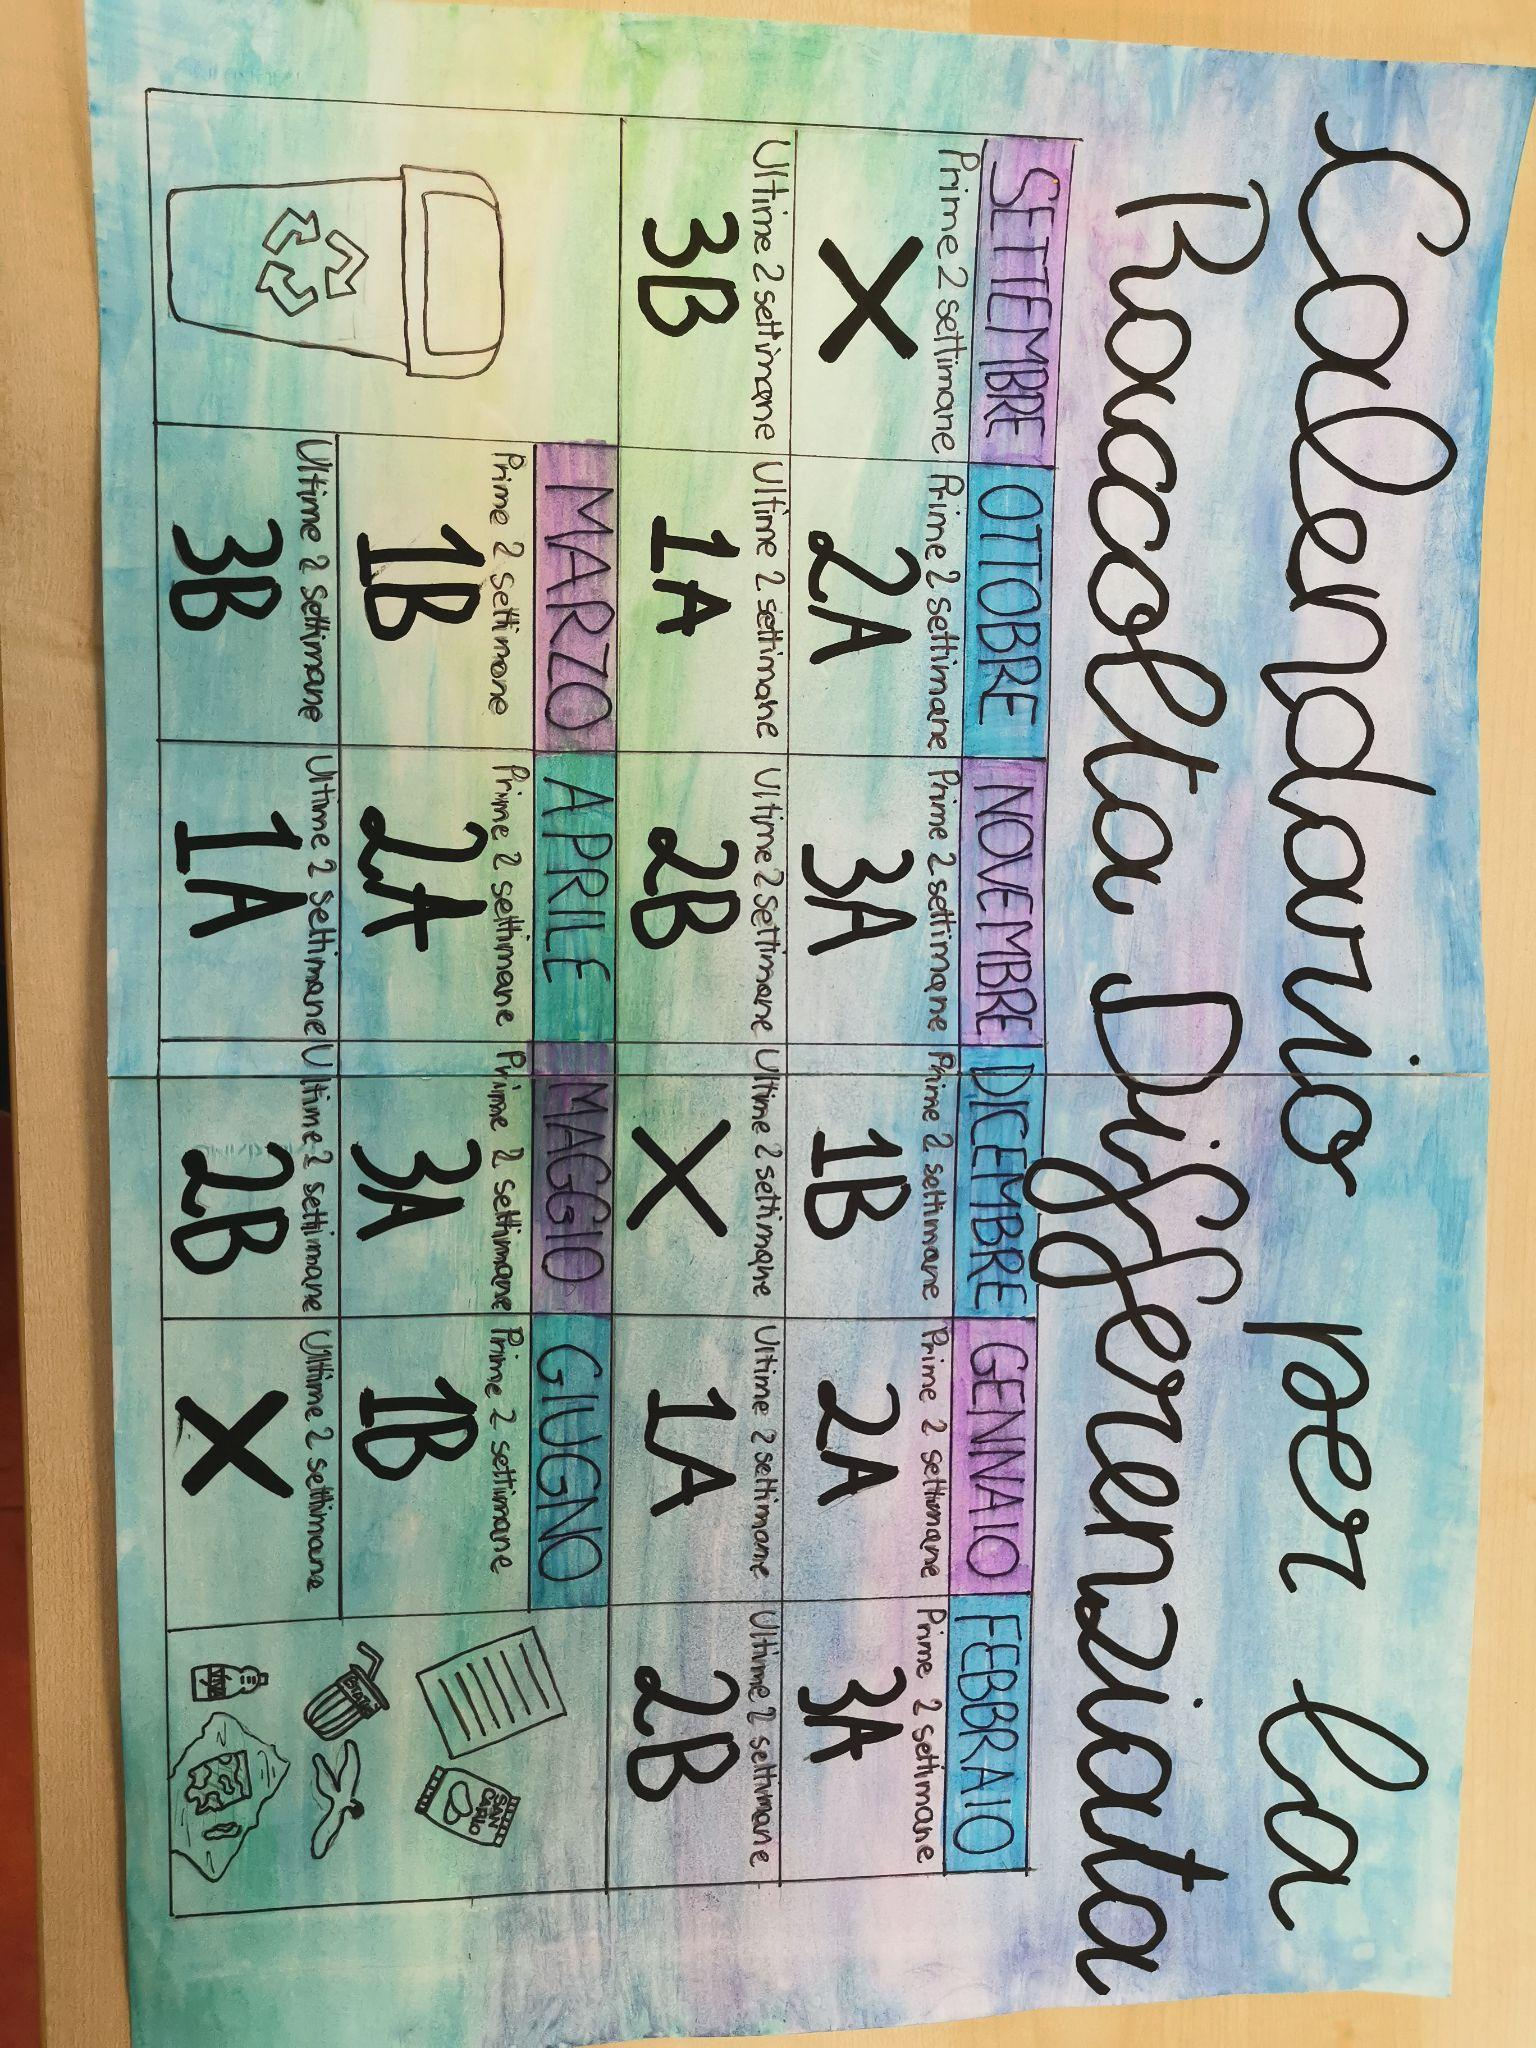 Calendario per la
Raccolta Differenziata
SETTEMBRE OTTOBRE NOVEMBRE DICEMBRE GENNAIO FEBBRAIO
Prime 2 settimane Prime 2 settimane Prime 2 settimane Prime 2 settimane Prime 2 settimane Prime 2 settimane
X 2A 3A 1B 2A 3A
Ultime 2 settimane Ultime 2 settimane Ultime 2 settimane Ultime 2 settimane Ultime 2 settimane Ultime 2 settimane
3B 1A 2B X 1A 2B
MARZO APRILE MAGGIO GIUGNO
Prime 2 settimane Prime 2 settimane Prime 2 settimane Prime 2 settimane
1B 2A 3A 1B
Ultime 2 settimane Ultime 2 settimane Ultime 2 settimane Ultime 2 settimane
3B 1A 2B X
SAN
CARLO